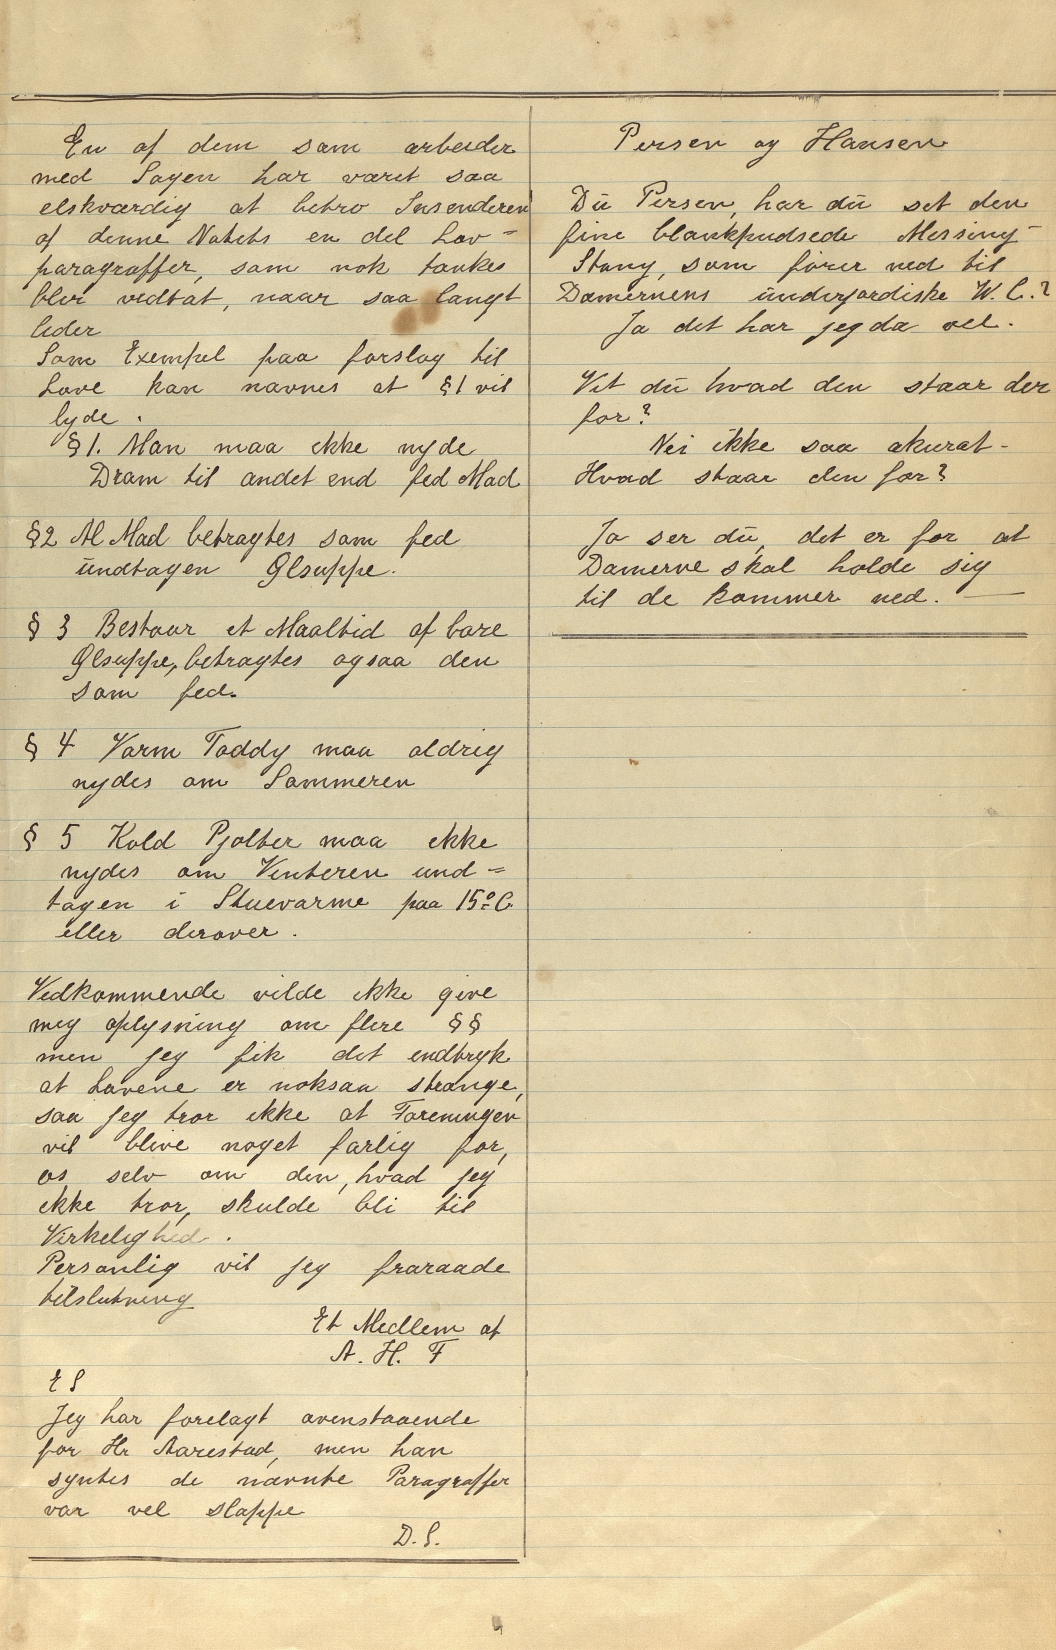 En af dem som arbeider
med Sagen har været saa
elskværdig at betro Insenderen
af denne Notits en del Lov=
paragraffer, som nok tænkes
blir vedtat, naar saa langt
lider
Som Exempel paa forslag til
Love kan nævnes at §1 vil
lyde.
§1. Man maa ikke nyde
Dram til andet end fed Mad
§2 Al Mad betragtes som fed
undtagen Ølsuppe.
§ 3 Bestaar et Maaltid af bare
Ølsuppe, betragtes ogsaa den
som fed.
§ 4 Varm Toddy maa aldrig
nydes om Sommeren
§ 5 Kold Pjolter maa ikke
nydes om Vinteren und=
tagen i Stuevarme paa 15° C.
eller derover.
Vedkommende vilde ikke give
mig oplysning om flere §§
men jeg fik det indtryk
at Lovene er noksaa strænge,
saa jeg tror ikke at Foreningen
vil blive noget farlig for,
os selv om den, hvad jeg
ikke tror, skulde bli til
Virkelighed.
Personlig vil jeg fraraade
tilslutning
Et Medlem af
A. H. F
E S
Jeg har forelagt ovenstaaende
for Hr Aarestad, men han
syntes de nævnte Paragraffer
var vel slappe
D. S.
Persen og Hansen
Du Persen, har du set den
fine blankpudsede Messing-
Stang, som fører ned til
Damernens underjordiske W. C.?
Ja det har jeg da vel.
Vet du hvad den staar der
for?
Nei ikke saa akurat-
Hvad staar den for?
Ja ser du, det er for at
Damerne skal holde sig
til de kommer ned. —